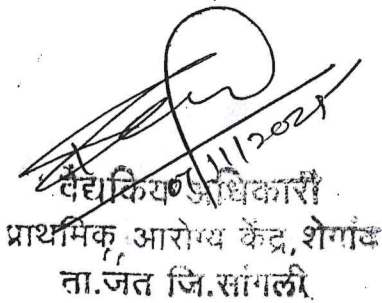 वैद्यकिय अधिकारी
प्राथमिक आरोग्य केंद्र, शेगांव
ता.जत जि.सांगली